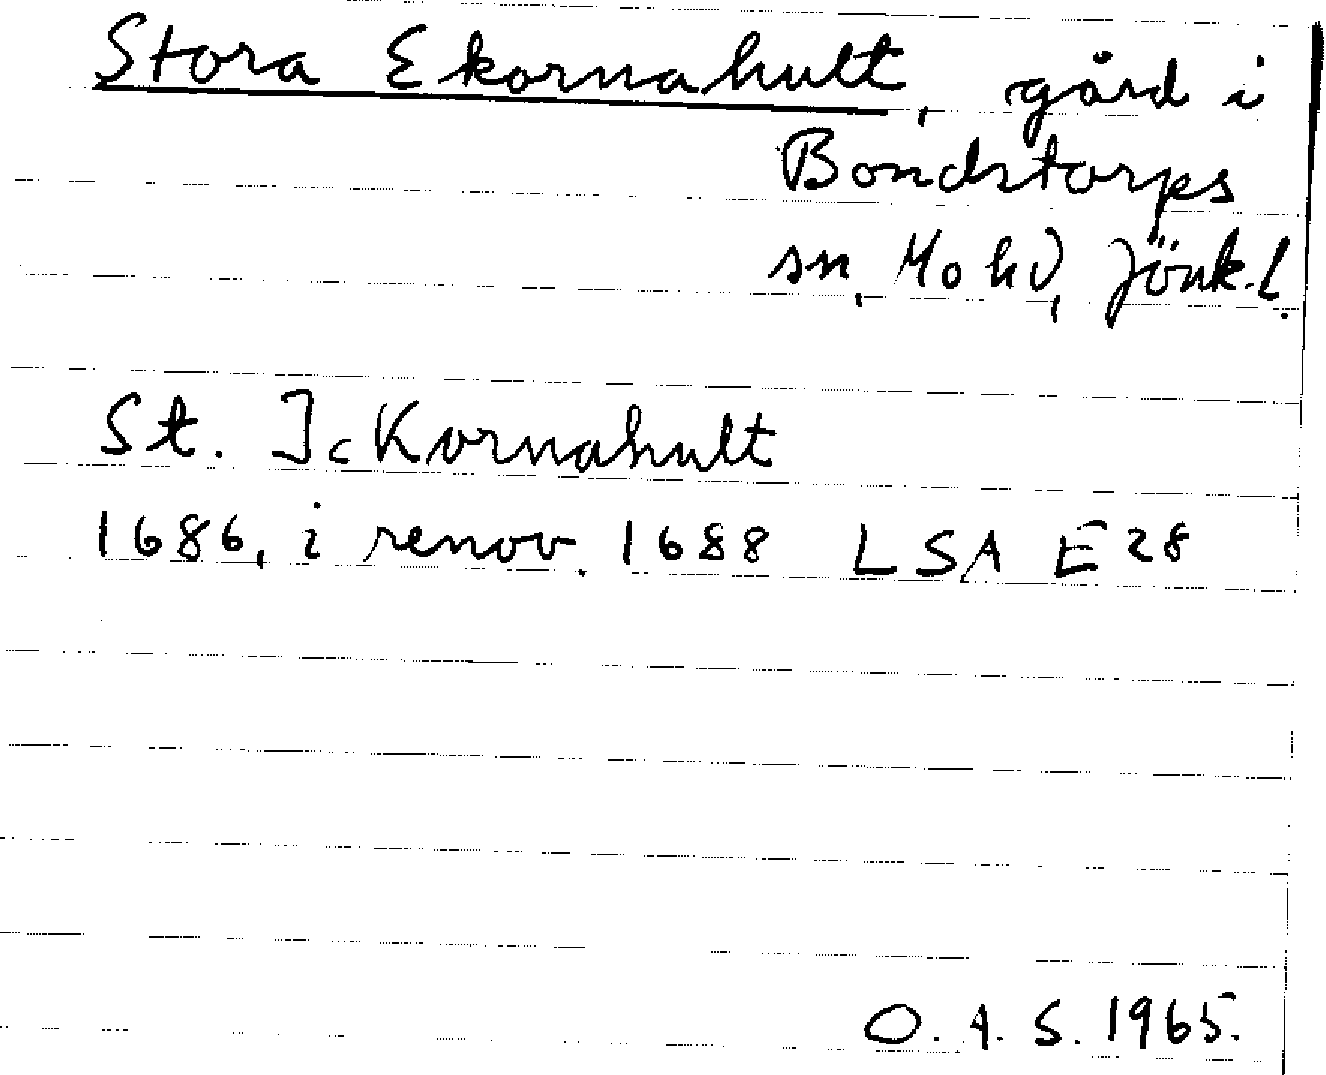 Stora Ekornahult, gård i
Bondstorps
sn, Mo hd, Jönk.l.
St. IcKornahult
1686, i renov. 1688 LSA E28
O.A.S. 1965.